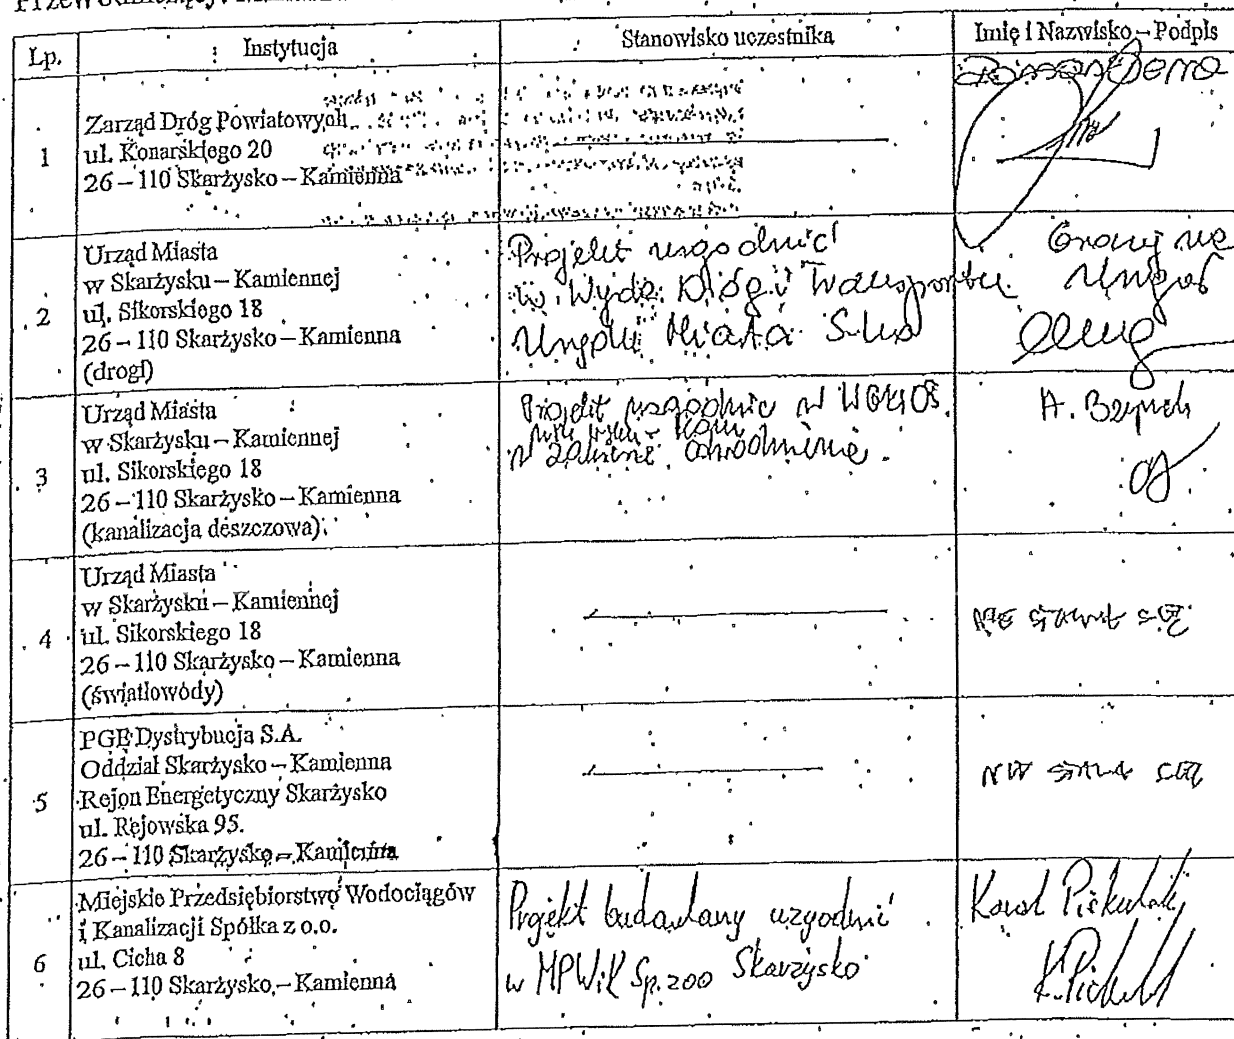 Lp.
Instytucja
Stanowisko uczestnika
Imię i Nazwisko – Podpis
1
Zarząd Dróg Powiatowych
ul. Konarskiego 20
26 – 110 Skarżysko – Kamienna
2
Urząd Miasta
w Skarżysku – Kamiennej
ul. Sikorskiego 18
26 – 110 Skarżysko – Kamienna
(drogi)
Projekt uzgodnić
w Wydz. Dróg i Transportu
Urzędu Miasta
3
Urząd Miasta
w Skarżysku – Kamiennej
ul. Sikorskiego 18
26 – 110 Skarżysko – Kamienna
(kanalizacja deszczowa)
Projekt uzgodnić w
w zakresie odwodnienia.
4
Urząd Miasta
w Skarżysku – Kamiennej
ul. Sikorskiego 18
26 – 110 Skarżysko – Kamienna
(światłowody)
NIE STAWIŁ SIĘ
5
PGE Dystrybucja S.A.
Oddział Skarżysko – Kamienna
Rejon Energetyczny Skarżysko
ul. Rejowska 95.
26 – 110 Skarżysko – Kamienna
NIE STAWIŁ SIĘ
6
Miejskie Przedsiębiorstwo Wodociągów
i Kanalizacji Spółka z o.o.
ul. Cicha 8
26 – 110 Skarżysko – Kamienna
Projekt budowlany uzgodnić
w MPWiK Sp. z o o Skarżysko
Karol